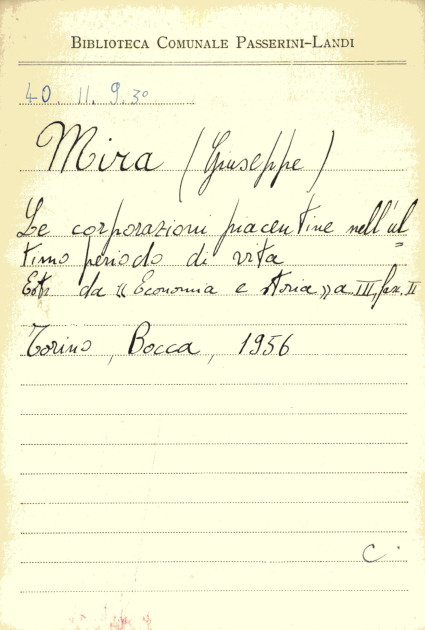 BIBLIOTECA COMUNALE PASSERINI-LANDI
40. 11. 9. 3º
Mira (Giuseppe)
Le corporazioni piacentine nell'ul
timo periodo di vita
Estr da "Economia e storia" a III, fasc. II
Torino, Bocca, 1956
C.